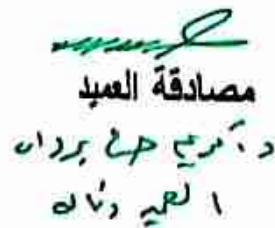 مصادقة العميد
د. كريم حسن
العميد وكالة